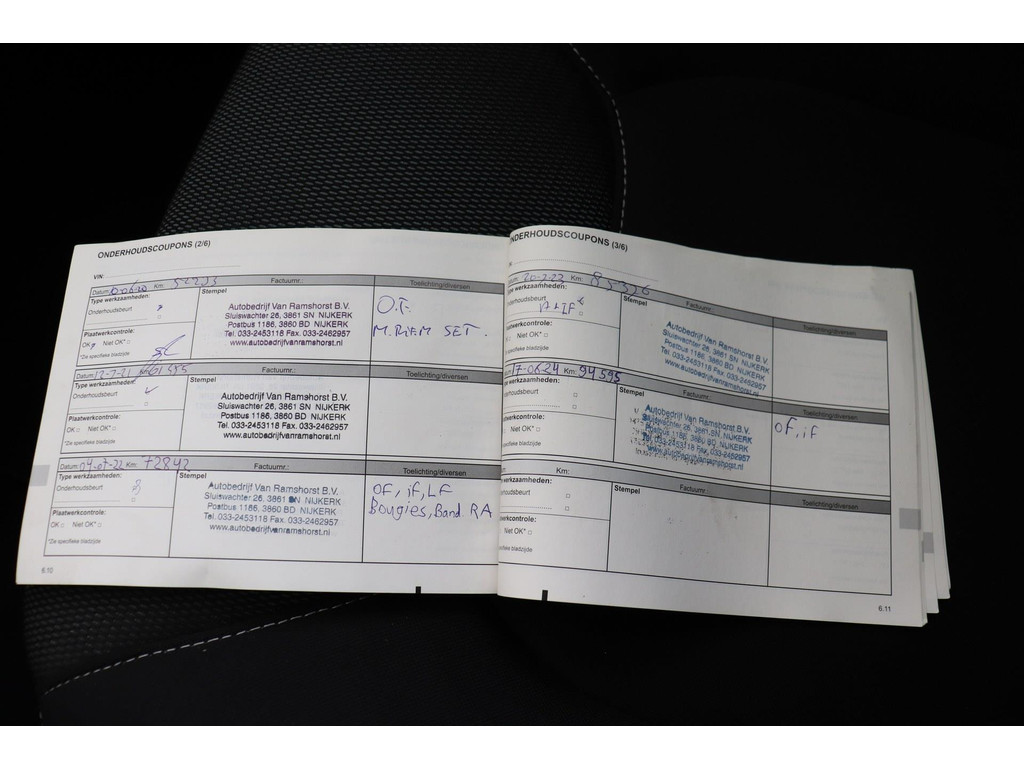 ONDERHOUDSCOUPONS (2/6)
VIN:
Datum: Km: 52233 Factuurnr.: Toelichting/diversen
Type werkzaamheden: Stempel
Onderhoudsbeurt
Plaatwerkcontrole:
OK Niet OK*
*Zie specifieke bladzijde
Autobedrijf Van Ramshorst B.V.
Sluiswachter 26, 3861 SN NIJKERK
Postbus 1186, 3860 BD NIJKERK
Tel. 033-2453118 Fax. 033-2462957
www.autobedrijfvanramshorst.nl
O.F.
M.RIEM SET.
Datum: 12-7-21 Factuurnr.: Toelichting/diversen
Type werkzaamheden: Stempel
Onderhoudsbeurt
Plaatwerkcontrole:
OK Niet OK*
*Zie specifieke bladzijde
Autobedrijf Van Ramshorst B.V.
Sluiswachter 26, 3861 SN NIJKERK
Postbus 1186, 3860 BD NIJKERK
Tel. 033-2453118 Fax. 033-2462957
www.autobedrijfvanramshorst.nl
Datum: 04-07-22 Km: 72842 Factuurnr.: Toelichting/diversen
Type werkzaamheden: Stempel
Onderhoudsbeurt
Plaatwerkcontrole:
OK Niet OK*
*Zie specifieke bladzijde
Autobedrijf Van Ramshorst B.V.
Sluiswachter 26, 3861 SN NIJKERK
Postbus 1186, 3860 BD NIJKERK
Tel. 033-2453118 Fax. 033-2462957
www.autobedrijfvanramshorst.nl
OF, if, LF
Bougies, Band. RA
6.10
ONDERHOUDSCOUPONS (3/6)
Km: 85326 Factuurnr.: Toelichting/diversen
werkzaamheden: Stempel
Niet OK*
specifieke bladzijde
Autobedrijf Van Ramshorst B.V.
Sluiswachter 26, 3861 SN NIJKERK
Postbus 1186, 3860 BD NIJKERK
Tel. 033-2453118 Fax. 033-2462957
www.autobedrijfvanramshorst.nl
17-06-24 Km: 94595 Factuurnr.: Toelichting/diversen
werkzaamheden: Stempel
Niet OK*
specifieke bladzijde
Autobedrijf Van Ramshorst B.V.
Sluiswachter 26, 3861 SN NIJKERK
Postbus 1186, 3860 BD NIJKERK
Tel. 033-2453118 Fax. 033-2462957
www.autobedrijfvanramshorst.nl
OF, if
Km: Factuurnr.: Toelichting/diversen
werkzaamheden: Stempel
Niet OK*
specifieke bladzijde
6.11